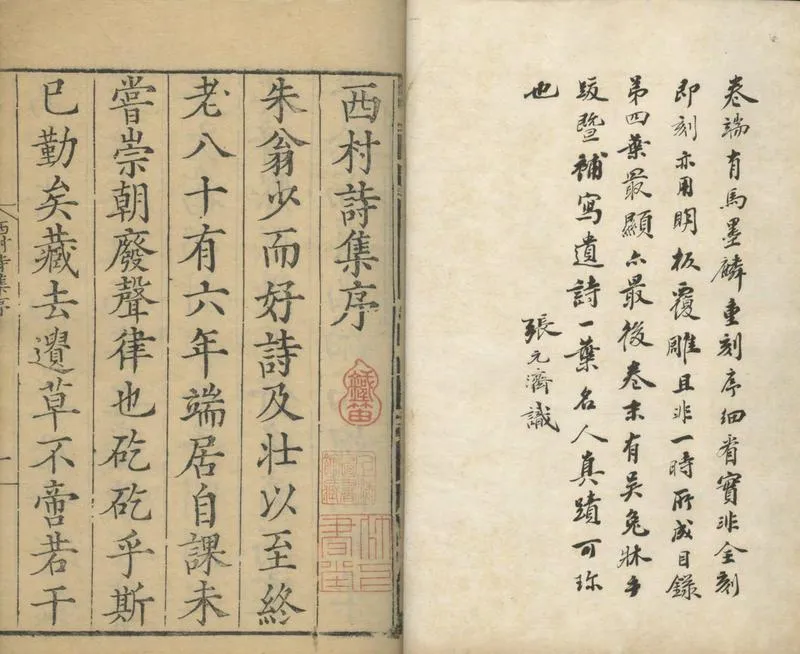 卷端有馬墨麟重刻序細省實非全刻
即刻亦用明板覆雕且非一時所成目錄
第四葉最顯亦最後卷末有吳兔牀手
跋暨補寫遺詩一葉名人真蹟可珎
也
張元濟識
西村詩集序
朱翁少而好詩及壯以至終
老八十有六年端居自課未
嘗崇朝廢聲律也矻矻乎斯
已勤矣藏去遺草不啻若干
西村詩集序
一